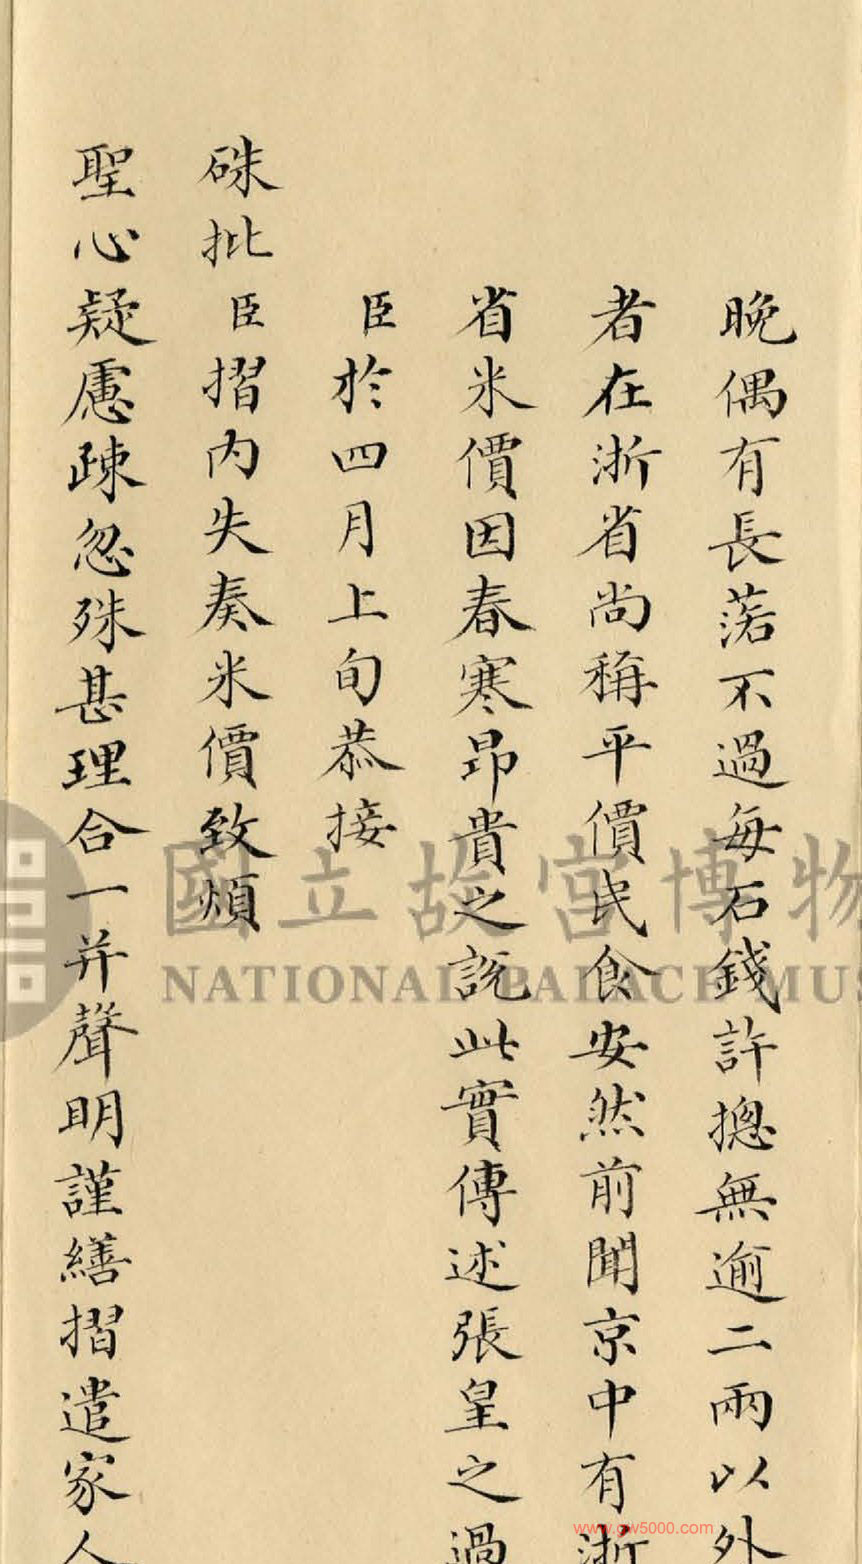 晚偶有長落不過每石錢許摠無逾二兩以外
者在浙省尚稱平價民食安然前聞京中有浙
省米價因春寒昂貴之説此實傳述張皇之過
臣於四月上旬恭接
硃批臣摺内失奏米價致煩
聖心疑慮疎忽殊甚理合一并聲明謹繕摺遣家人
國立故宮博物
NATIONAL PALACE MUS
www.gw5000.com